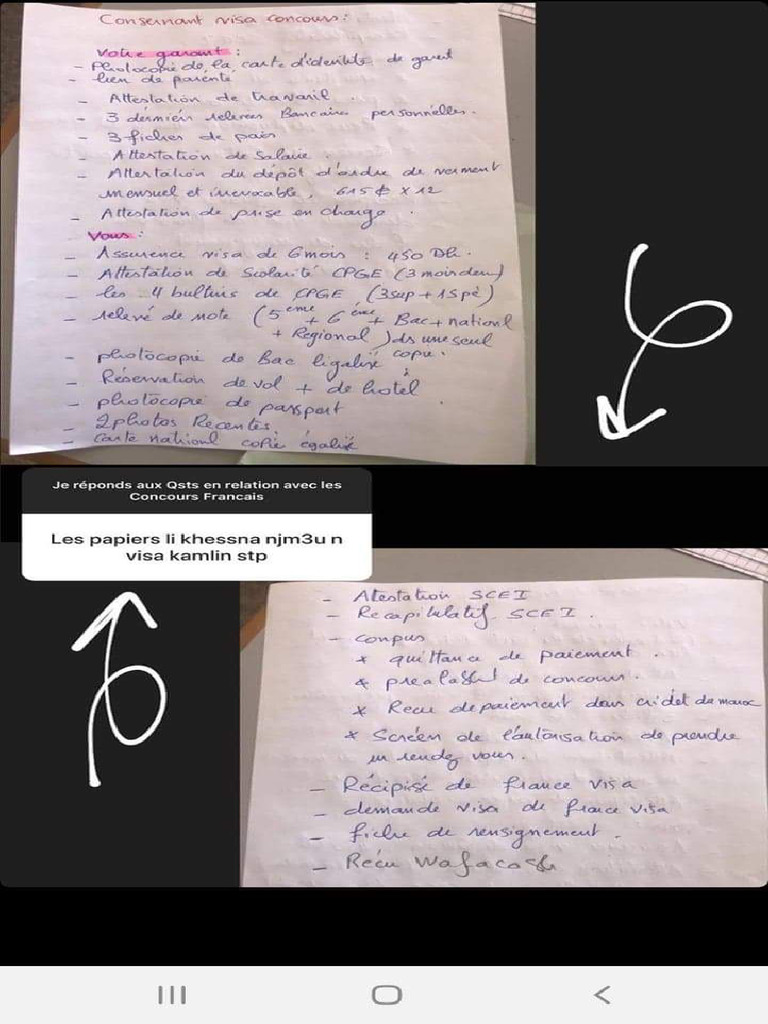 Consernant visa concours :
Votre garant :
- Photocopie de la carte d'identité de garent
- lien de parenté
- Attestation de travail .
- 3 derniers relevés Bancaire personnelles.
- 3 fiches de paie
- Attestation de Salaire .
- Attestation du dépôt d'ordre de verment
mensuel et irrevocable , 615 € x 12
- Attestation de prise en charge .
Vous :
- Assurence visa de 6 mois : 450 Dh.
- Attestation de Scolarité CPGE (3 moin deu)
- les 4 bultins de CPGE (3 sup + 1 Spé)
- relevé de note (5 eme + 6 éme + Bac + nationl
+ Regional ) ds une seul
copie.
- photocopie de Bac ligalisé
- Réservation de vol + de hotel
- photocopie de passport
- 2 photos Recentes.
- Carte nationl copie égalisé
Je réponds aux Qsts en relation avec les
Concours Francais
Les papiers li khessna njm3u n
visa kamlin stp
- Atestation SCEI
- Recapitulatif SCEI .
- conpus
* quittance de paiement .
* de concours.
* Recu de paiement dans du maroc
* Screen de l'autorisation de prendre
un rendez vous .
- Récipisé de france visa
- demande visa de france visa
- fiche de rensignement .
- Recu Wafacash